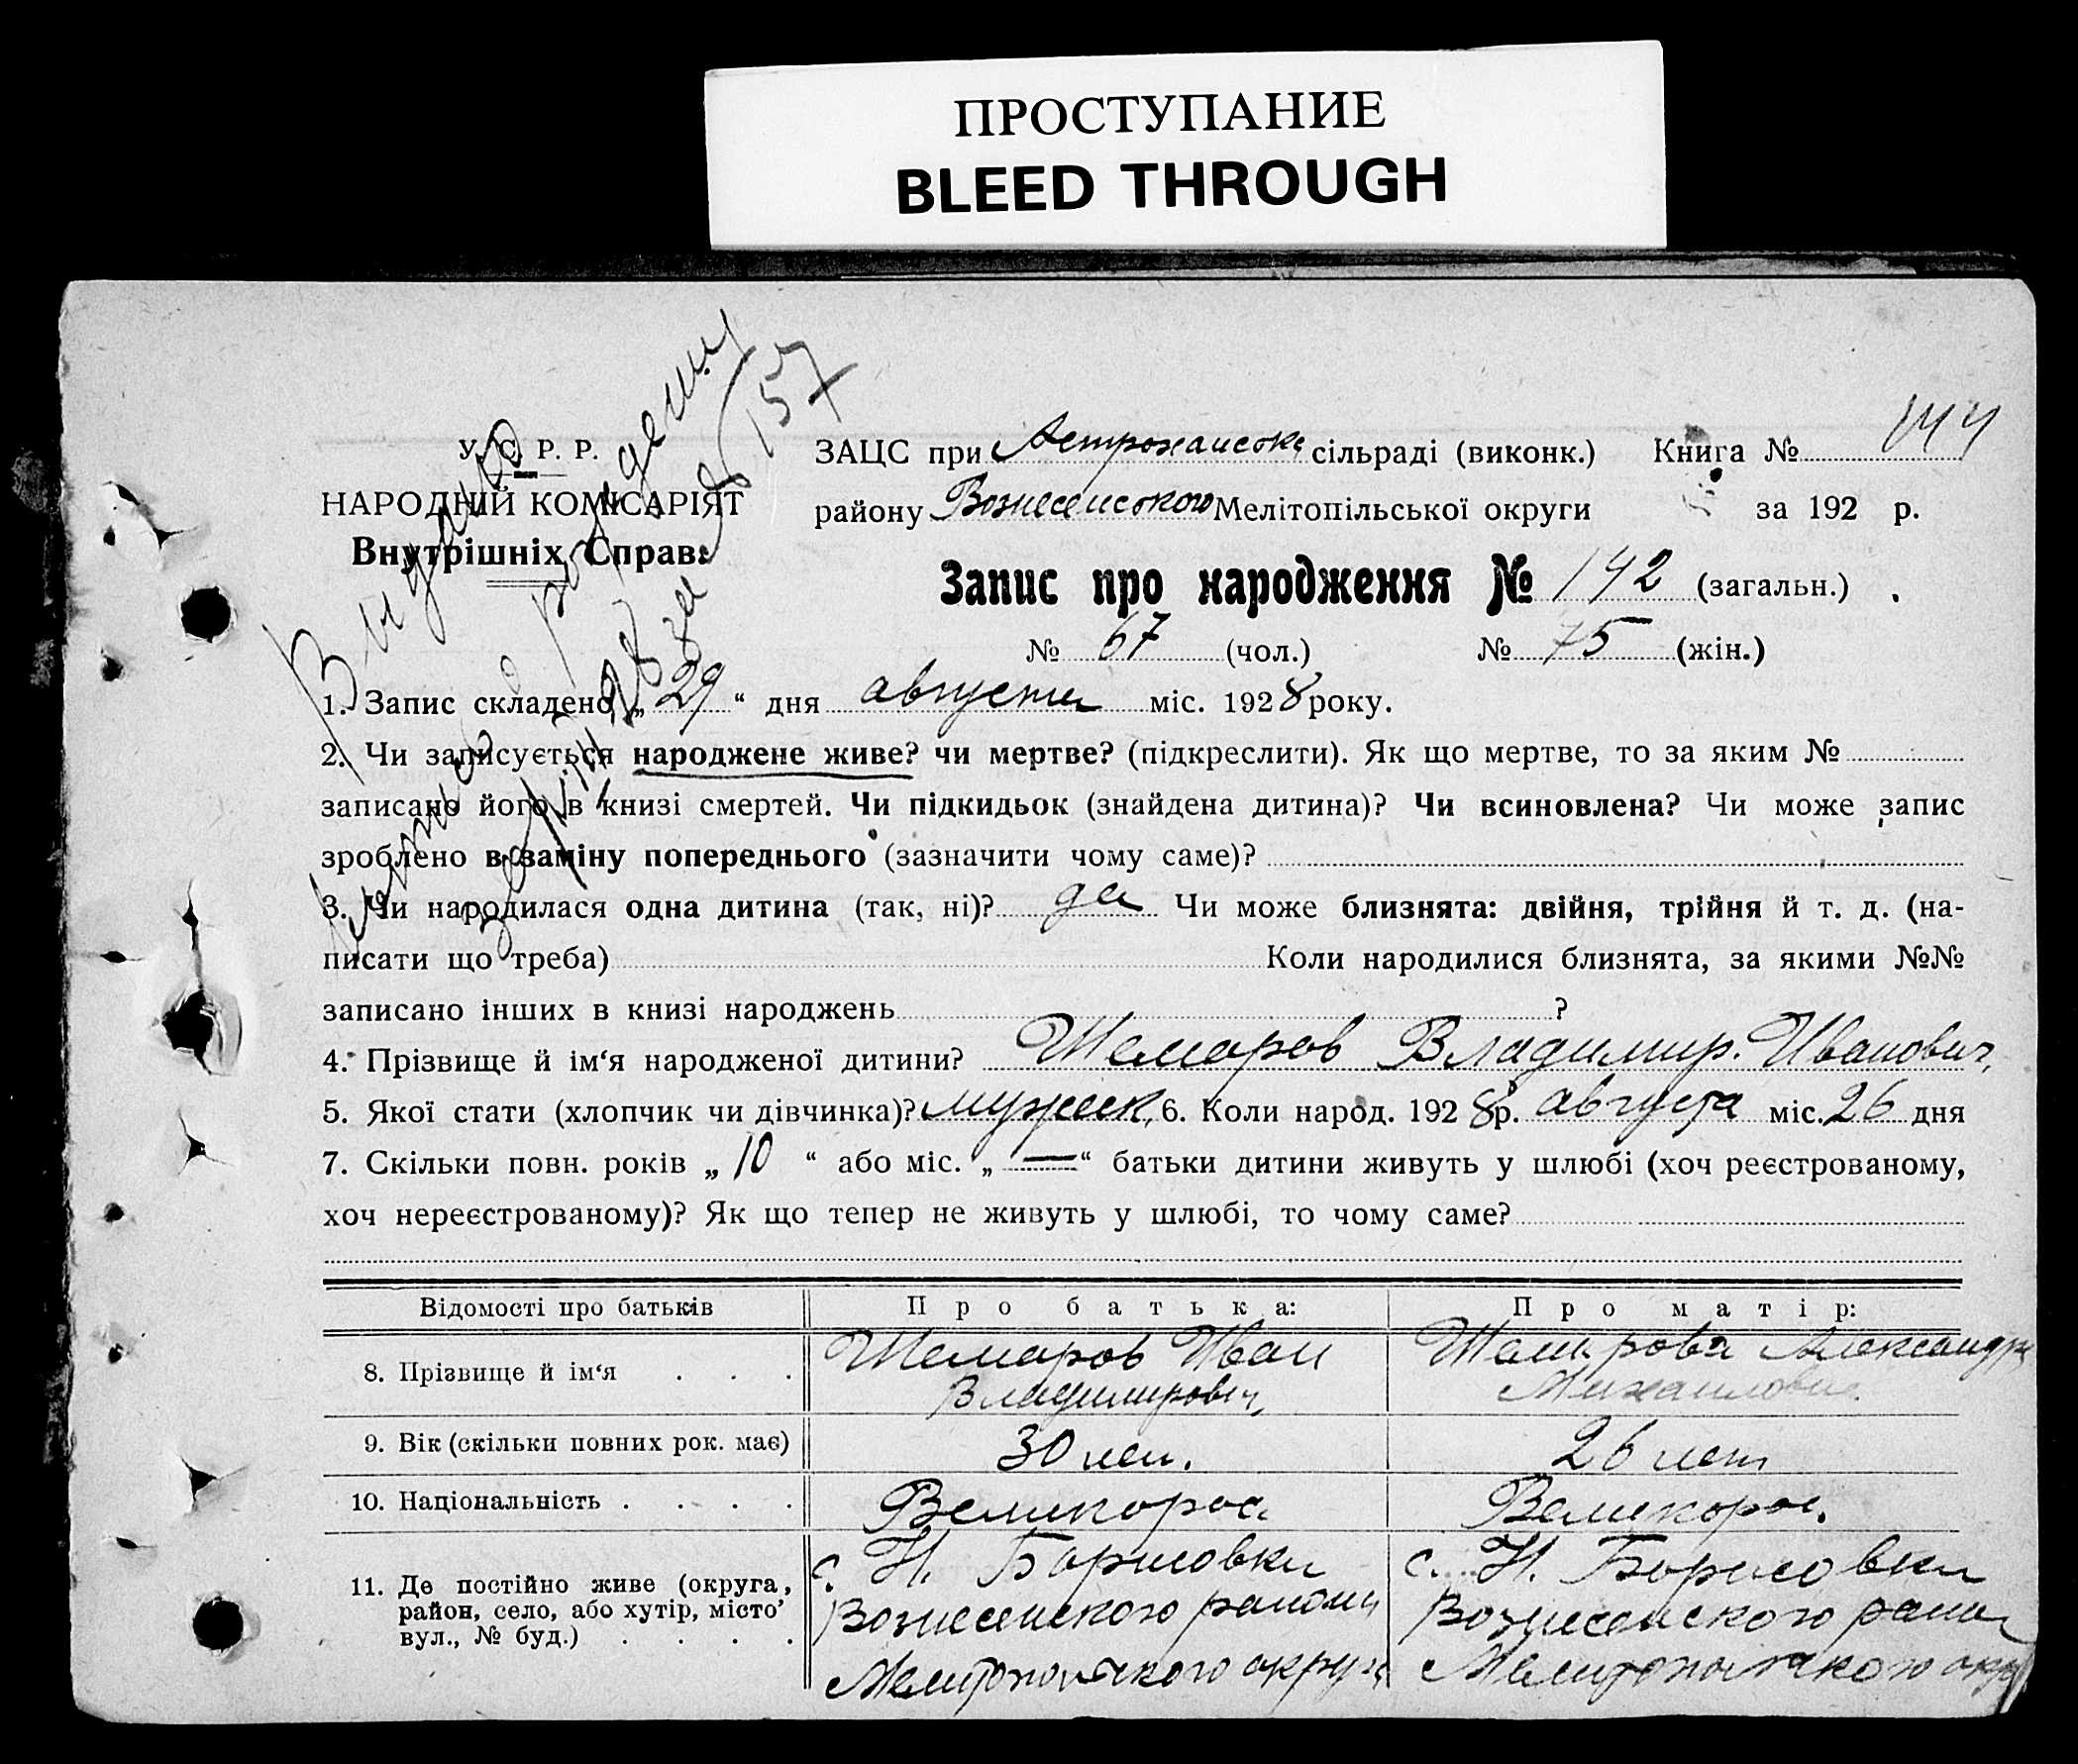 ПРОСТУПАНИЕ
BLEED THROUGH
У. С. Р. Р.
НАРОДНІЙ КОМІСАРІЯТ
Внутрішніх Справ.
ЗАЦС при Астроханське сільраді (виконк.) Книга № 144
району Вознесенського Мелітопільської округи за 192 р.
Запис про народження № 142 (загальн.)
№ 67 (чол.) № 75 (жін.)
Видано
1. Запис складено „ 29 “ дня августа міс. 1928 року.
2. Чи записується народжене живе? чи мертве? (підкреслити). Як що мертве, то за яким №
записано його в книзі смертей. Чи підкидьок (знайдена дитина)? Чи всиновлена? Чи може запис
зроблено в заміну попереднього (зазначити чому саме)?
3. Чи народилася одна дитина (так, ні)? да Чи може близнята: двійня, трійня й т. д. (на-
писати що треба) Коли народилися близнята, за якими №№
записано інших в книзі народжень ?
4. Прізвище й ім‘я народженої дитини? Шемаров Владимир. Иванович,
5. Якої стати (хлопчик чи дівчинка)? мужеск, 6. Коли народ. 1928 р. августа міс. 26 дня
7. Скільки повн. років „ 10 “ або міс. „ — “ батьки дитини живуть у шлюбі (хоч реєстрованому,
хоч нереєстрованому)? Як що тепер не живуть у шлюбі, то чому саме?
Відомості про батьків Про батька: Про матір:
8. Прізвище й ім‘я . . . Шемаров Иван Шемарова Александра
Владимирович, Михаиловна.
9. Вік (скільки повних рок. має) 30 лет. 26 лет
10. Національність . . . . Великорос. Великорос.
11. Де постійно живе (округа, район, село, або хутір, місто, вул., № буд.) . . . .
с. Н. Борисовки с. Н. Борисовки
Вознесенского района Вознесенского района
Мелитопольского округа Мелитопольского окр